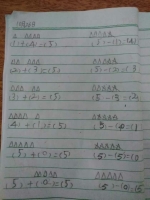 (1)+(4)=(5) (5)-(1)=(4)
(2)+(3)=(5) (5)-(2)=(3
(3)+(2)=(5) (5)-(3)=(2)
(4)+(1)=(5) (5)-(4)=(1)
(5)+(0)=(5) (5)-(5)=(0
(5)+(0)=(5) (5)-(0)=(5)